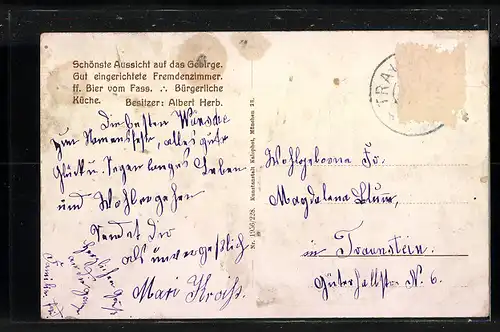 Schönste Aussicht auf das Gebirge.
Gut eingerichtete Fremdenzimmer.
ff. Bier vom Fass. ∴ Bürgerliche
Küche. Besitzer: Albert Herb.
Die besten Wünsche
zum Namensfeste, alles gute
Glück u. Segen langes Leben
und Wohlergehen
Sendet dir
als unvergeßlich
Mari Kroiß.
Herzlichen Gruß
Nr. 1356/228. Kunstanstalt München 25.
TRAU
Wohlgeborne Frl.
Magdalena Blum,
in Traunstein.
Güterhallstr. N. 6.